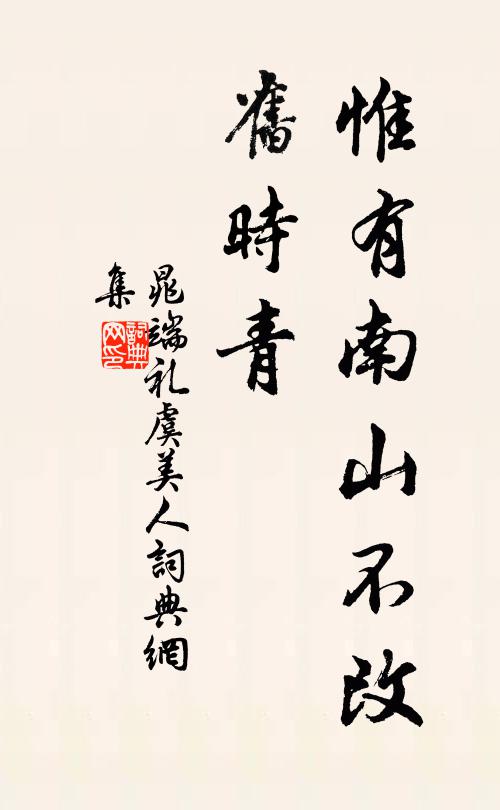 惟有南山不改
舊時青
晁端礼虞美人詞典網
集
詞典网印